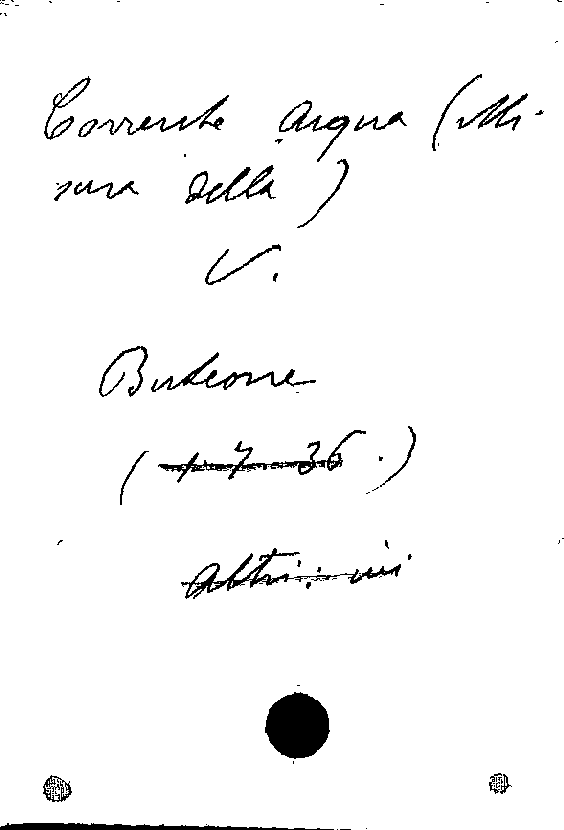 Corrente Acqua (Mi-
sura della)
V.
Buteone
(1 7 36.)
Altri: ivi